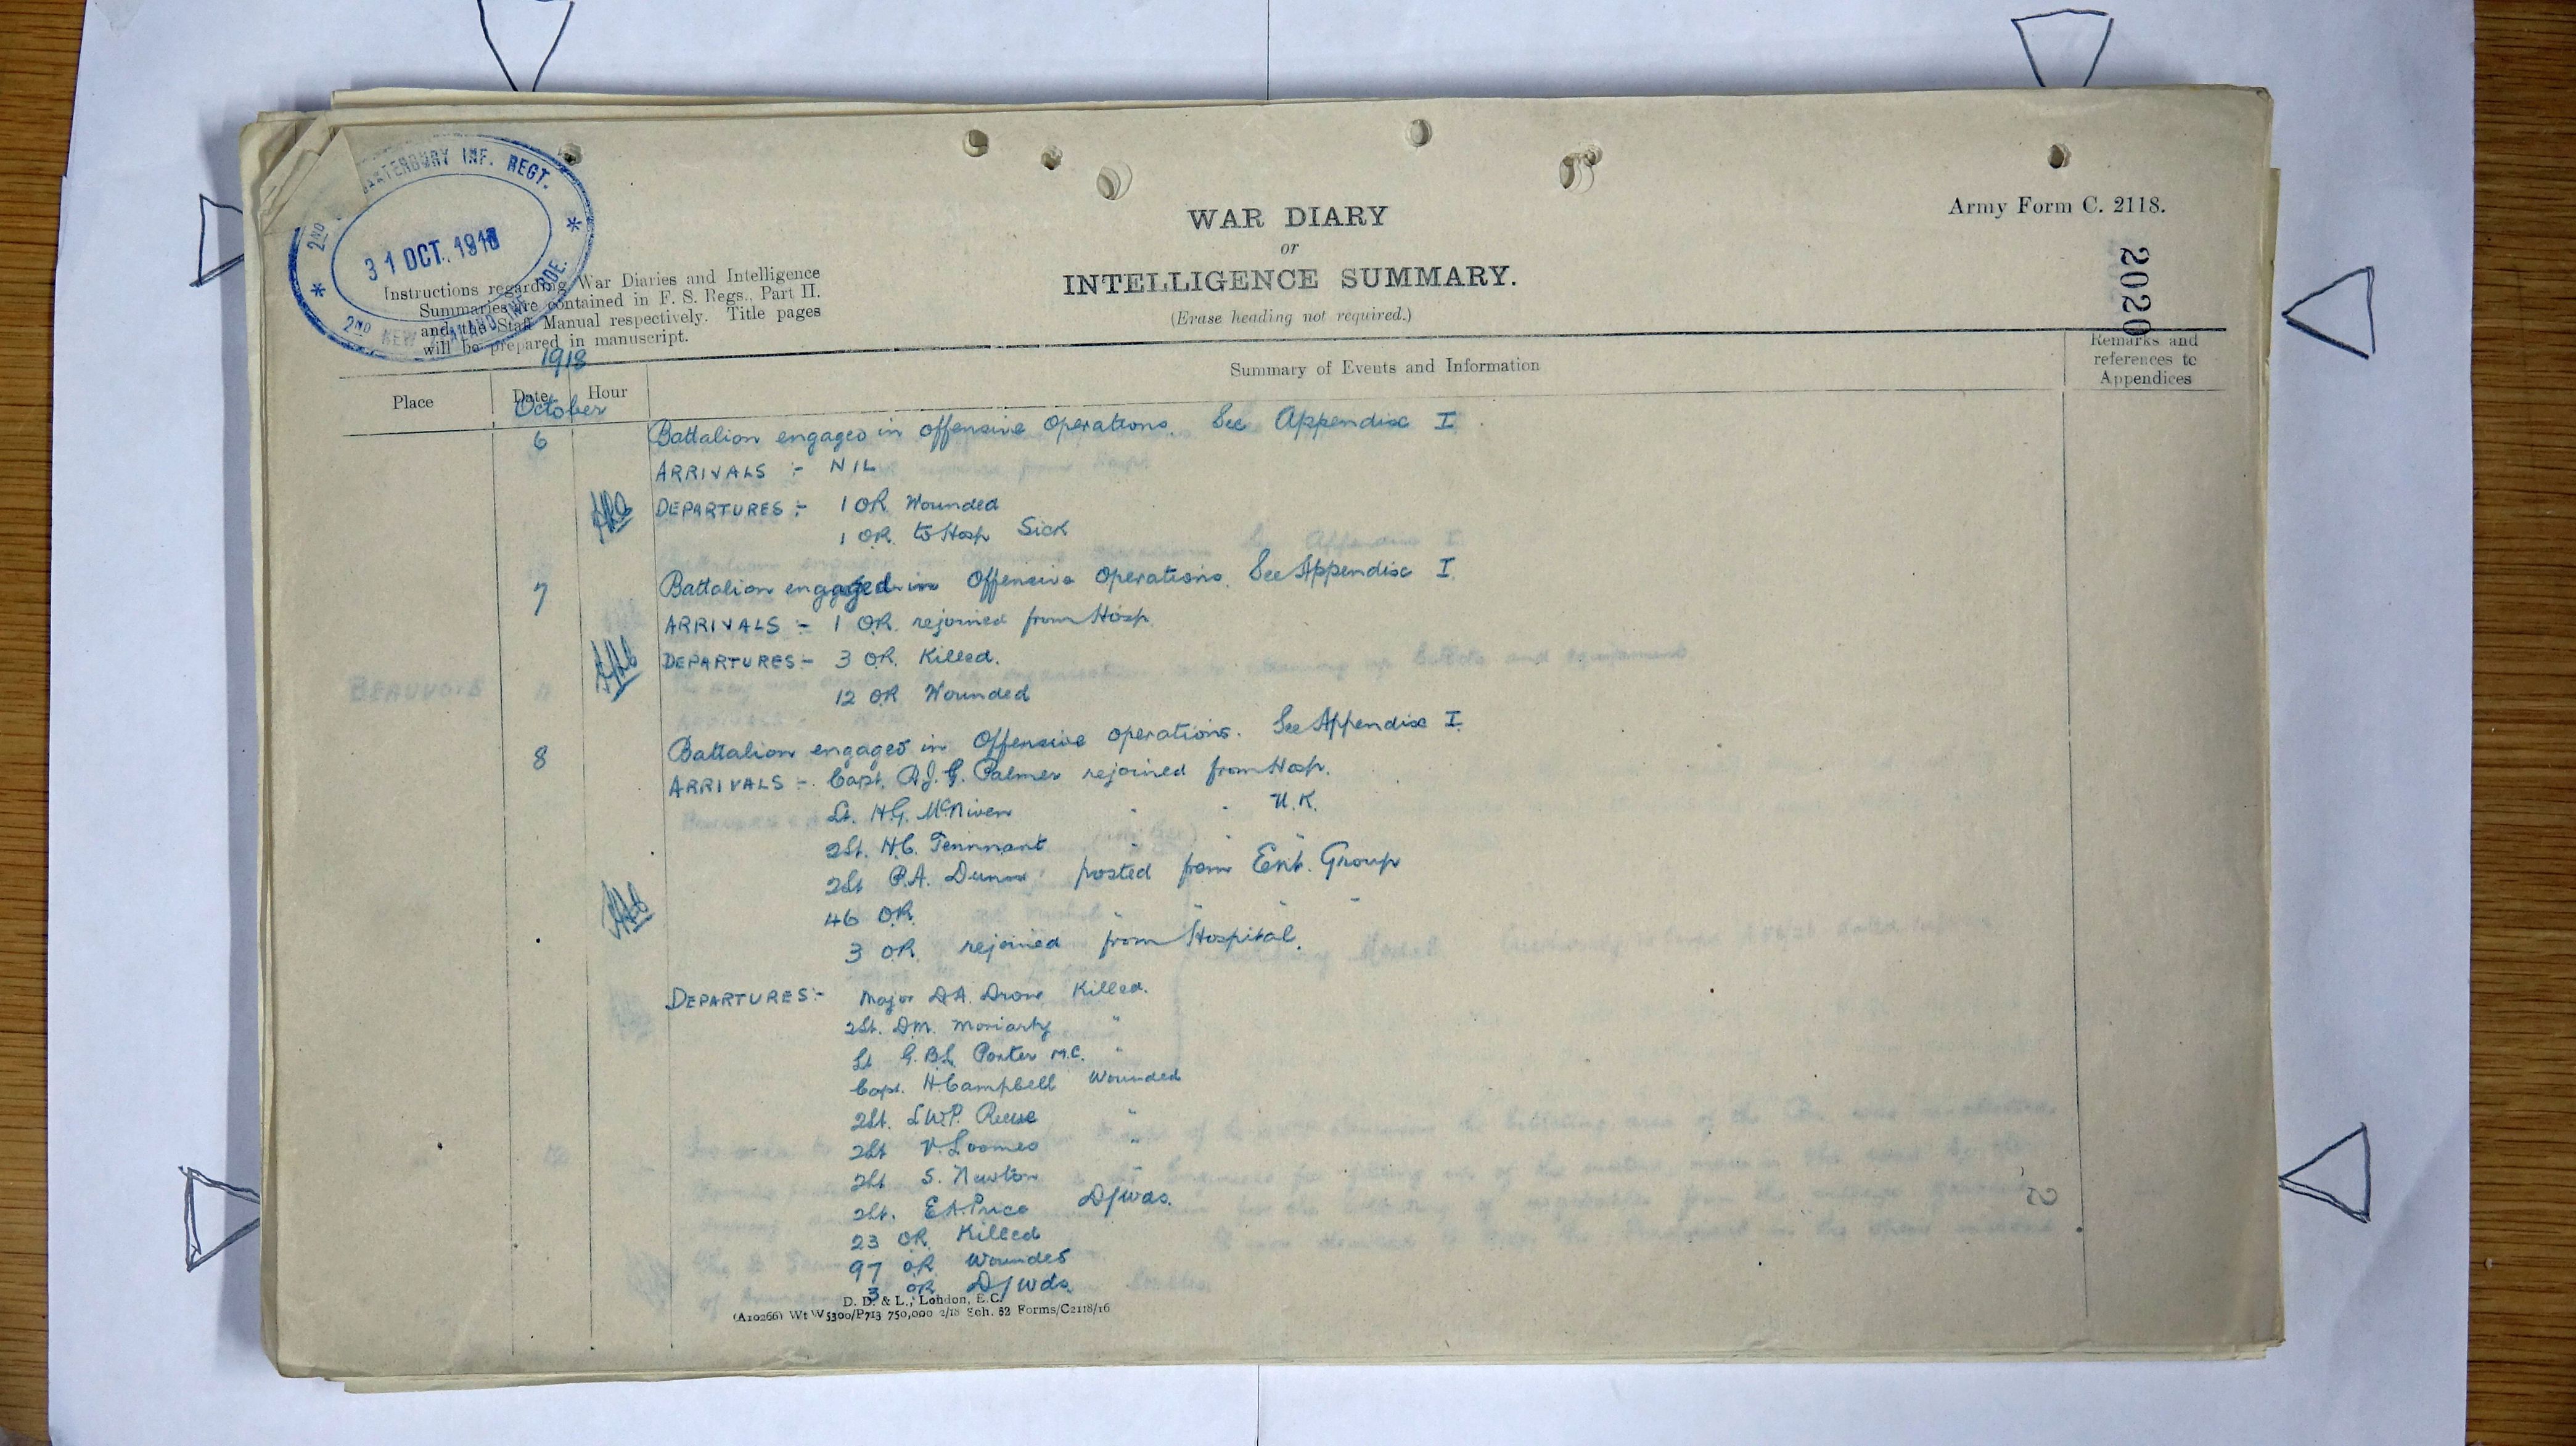 2ND CANTERBURY INF. REGT.
31 OCT. 1918
2ND NEW ZEALAND INF. BDE.
Army Form C. 2118.
2020
WAR DIARY
or
INTELLIGENCE SUMMARY.
(Erase heading not required.)
Instructions regarding War Diaries and Intelligence
Summaries are contained in F. S. Regs., Part II.
and the Staff Manual respectively. Title pages
will be prepared in manuscript.
1918
Place Date Hour Summary of Events and Information Remarks and references to Appendices
October
6 Battalion engaged in offensive operations. See Appendix I.
ARRIVALS :- NIL
DEPARTURES :- 1 OR Wounded
1 O.R. to Hosp Sick
7 Battalion engaged in Offensive Operations. See Appendix I.
ARRIVALS :- 1 O.R. rejoined from Hosp.
DEPARTURES :- 3 O.R. Killed.
12 O.R. Wounded
8 Battalion engaged in Offensive operations. See Appendix I.
ARRIVALS :- Capt. A.J.G. Palmer rejoined from Hosp.
Lt. H.G. McNiven " " U.K.
2Lt. H.C. Tennnant " " "
2Lt P.A. posted from Ent. Group
46 O.R. " " "
3 O.R. rejoined from Hospital.
DEPARTURES :- Major D.A. Killed.
2Lt. D.M. Moriarty "
Lt G.B.L. Porter M.C. "
Capt. H Campbell Wounded
2Lt. L.W.P. Reese "
2Lt V. Loomes "
2Lt S. Newton "
2Lt. E.A. Price D/wds.
23 O.R. Killed
97 O.R. Wounded
3 OR D/wds.
D. D. & L., London, E.C.
(A10266) Wt W5300/P713 750,000 2/18 Sch. 52 Forms/C2118/16
BEAUVOIS